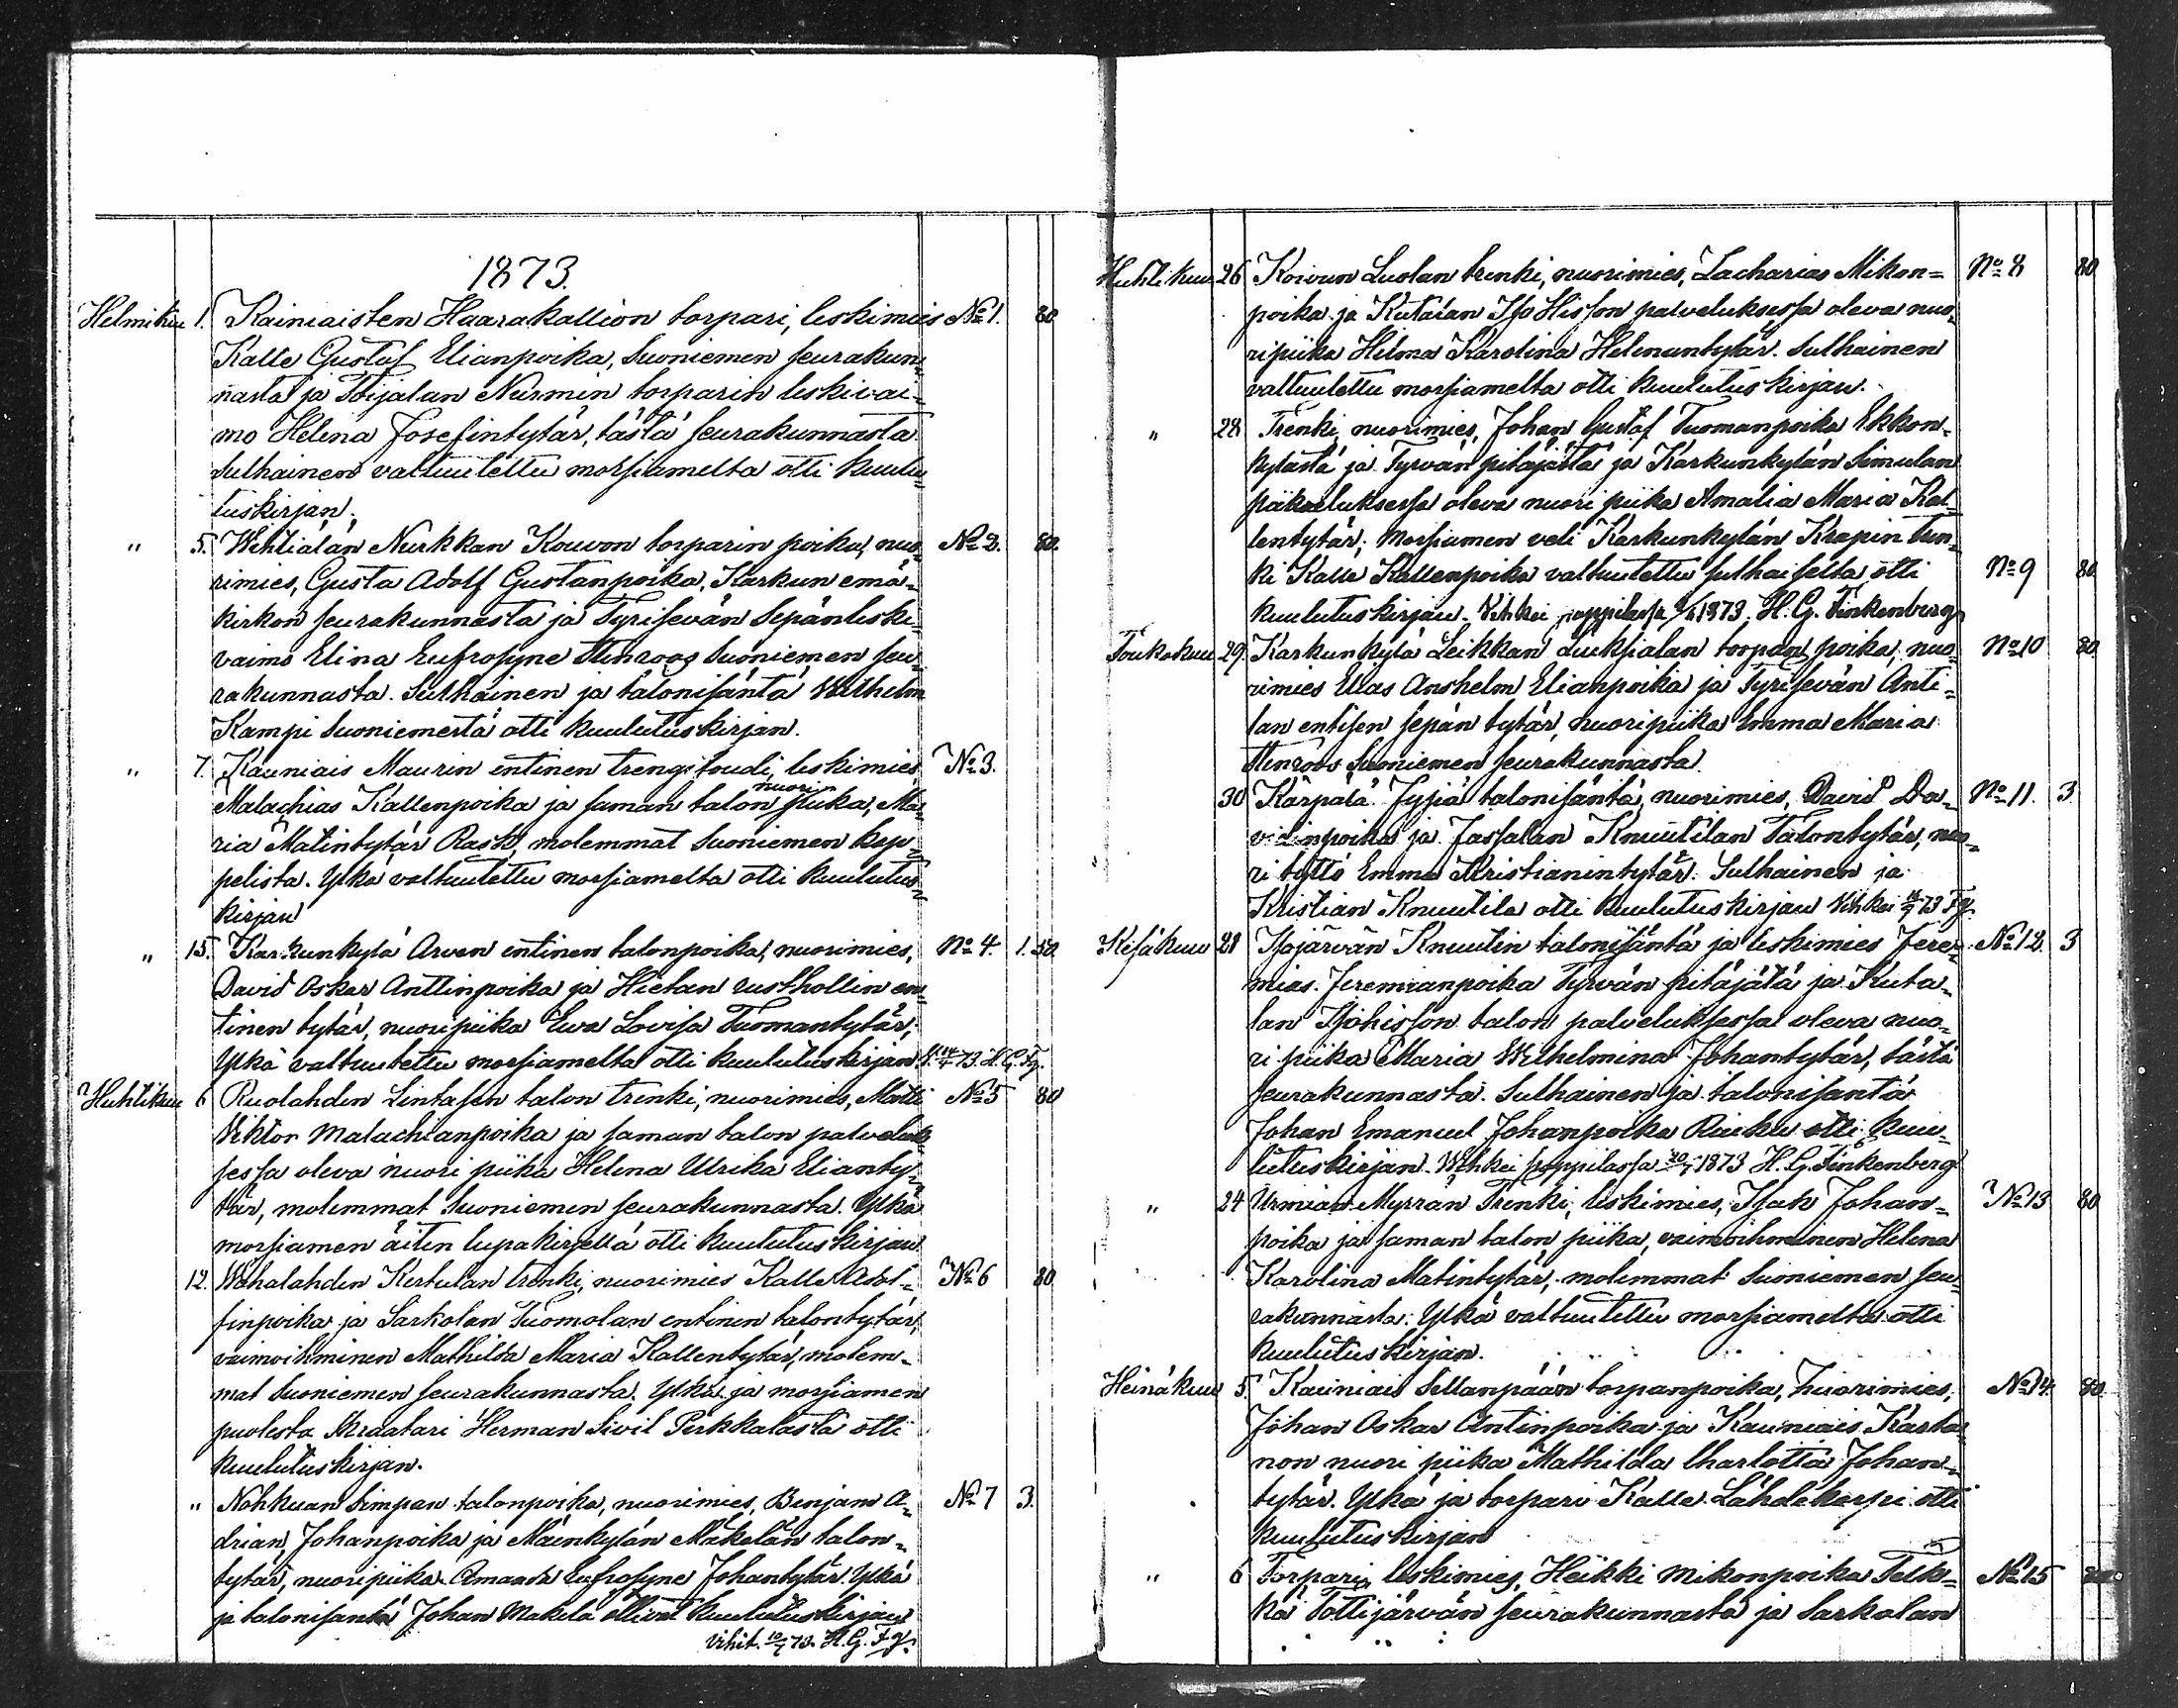 1873.
Helmikuu 1. Kainiaisten Haarakallion torpari, leskimies No 1. 80
Kalle Gustaf Elianpoika, Suoniemen seurakun„
nasta ja Toijalan Nurmin torparin leskivai„
mo Helena Josefintytär, tästä seurakunnasta
Sulhainen valtuutettu morsiamelta otti kuulu„
tuskirjan.
" 5. Wihtiälän Nurkkan Kouvon torparin poika, nuo„ No 2. 80.
rimies, Gusta Adolf Gustanpoika, Karkun emä„
kirkon seurakunnasta ja Tyrisevän Sepänleski„
vaimo Elina Eufrosyne Stenroos Suoniemen seu„
rakunnasta. Sulhainen ja talonisäntä Wilhelm
Kampi Suoniemestä otti kuulutuskirjan.
" 7. Kauniais Maurin entinen trengitoudi, leskimies No 3.
nuori
Malachias Kallenpoika ja saman talon piika, Ma„
ria Matintytär Rask, molemmat Suoniemen kap„
pelista. Ylkä valtuutettu morsiamelta otti kuulutus„
kirjan
" 15. Karkunkylä Arven entinen talonpoika, nuorimies, No 4. 1. 50.
David Oskar Anttinpoika ja Hietan rusthollin en„
tinen tytär, nuoripiika Ewa Lovisa Tuomantytär;
Ylkä valtuutettu morsiamelta otti kuulutuskirjan. 73. H. G. Fg.
Huhtikuu 6 Ruolahden Lintasen talon trenki, nuorimies, Matti No 5 80
Viktor Malachianpoika ja saman talon palveluk„
sessa oleva nuori piika Helena Ulrika Elianty„
tär, molemmat Suoniemen seurakunnasta. Ylkä
morsiamen äitin lupakirjellä otti kuulutuskirjan
12. Wahalahden Kertulan trenki, nuorimies Kalle Adol„ No 6 80.
finpoika ja Sarkolan Tuomolan entinen talontytär,
vaimoihminen Mathilda Maria Kallentytär, molem„
mat Suoniemen seurakunnasta. Ylkä ja morsiamen
puolesta Kraatari Herman Sivil Perkkalasta otti
kuulutuskirjan.
" Nohkuan Simpan talonpoika, nuorimies, Benjam A„ No 7 3.
drian, Johanpoika ja Mäinkylän Mäkelän talon„
tytär, nuoripiika Amanda Eufrosyne Johantytär. Ylkä
ja talonisäntä Johan Mäkelä ottivat kuulutuskirjan
vihit. 10/7 73. H. G. Fg.
Huhtikuu 26 Koivun Luolan trenki, nuorimies, Zacharias Mikon= No 8 80
poika ja Kutalan Iso Hisson palveluksessa oleva nuo„
ripiika Hilma Karolina Helenantytär. Sulhainen
valtuutettu morsiamelta otti kuulutuskirjan.
" 28 Trenki, nuorimies, Johan Gustaf Tuomanpoika Ekkon„
kylästä ja Tyrvän pitäjästä ja Karkunkylän Simulan
palveluksessa oleva nuori piika Amalia Maria Kal„
lentytär; Morsiamen veli Karkunkylän Krapin tren„
ki Kalle Kallenpoika valtuutettu sulhaiselta otti No 9 80
kuulutuskirjan. Vihkei pappilassa 1873. H. G. Finkenberg
Toukokuu 29. Karkunkylä Leikkan Luuksialan torpan poika, nuo„ No 10 80.
rimies Elias Anshelm Elianpoika ja Tyrisevän Anti„
lan entisen sepän tytär, nuoripiika Emma Maria
Stenroos Suoniemen seurakunnasta.
30 Kärpälä Jysiä talonisäntä, nuorimies, David Da„ No 11. 3
vidinpoika ja Jassalan Knuutilan Talontytär, nuo„
ri tyttö Emma Kristianintytär. Sulhainen ja
Kristian Knuutila otti kuulutuskirjan Vihkei 73 Fg.
Kesäkuu 28 Isojärvän Knuutin talonisäntä ja leskimies Jere„ No 12. 3
mias Jeremianpoika Tyrvän pitäjätä ja Kuta„
lan Isohisson talon palveluksessa oleva nuo„
ri piika Maria Wilhelmina Johantytär, tästä
seurakunnasta. Sulhainen ja talonisäntä
Johan Emanuel Johanpoika Raiku otti kuu„
lutuskirjan. Vihkei pappilassa 20/7 1873 H. G. Finkenberg
" 24 Urmian Myrran Trenki, leskimies, Isak Johan„ No 13 80
poika ja saman talon piika, vaimoihminen Helena
Karolina Matintytär, molemmat Suoniemen seu„
rakunnasta. Ylkä valtuutettu morsiamelta otti
kuulutuskirjan.
Heinäkuu 5. Kauniais Sellanpään torpanpoika, nuorimies, No 14. 80.
Johan Oskar Antinpoika ja Kauniais Karta„
non nuori piika Mathilda Charlotta Johan„
tytär. Ylkä ja torpari Kalle Lähdekorpi otti
kuulutuskirjan
" 6 Torpari, leskimies, Heikki Mikonpoika Telk„ No 15
kä Tottijärvän seurakunnasta ja Sarkolan